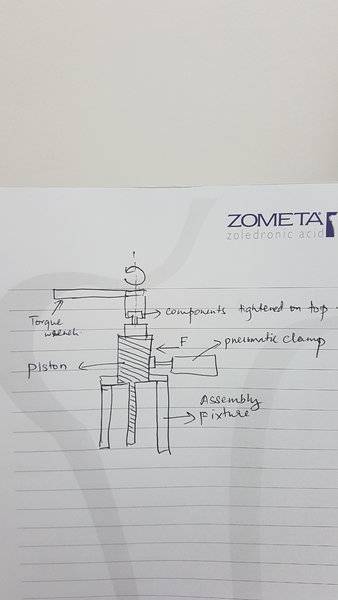 ZOMETA
zoledronic acid
components tightened on top.
Torque
wrench
F
pneumatic clamp
piston
Assembly
fixture